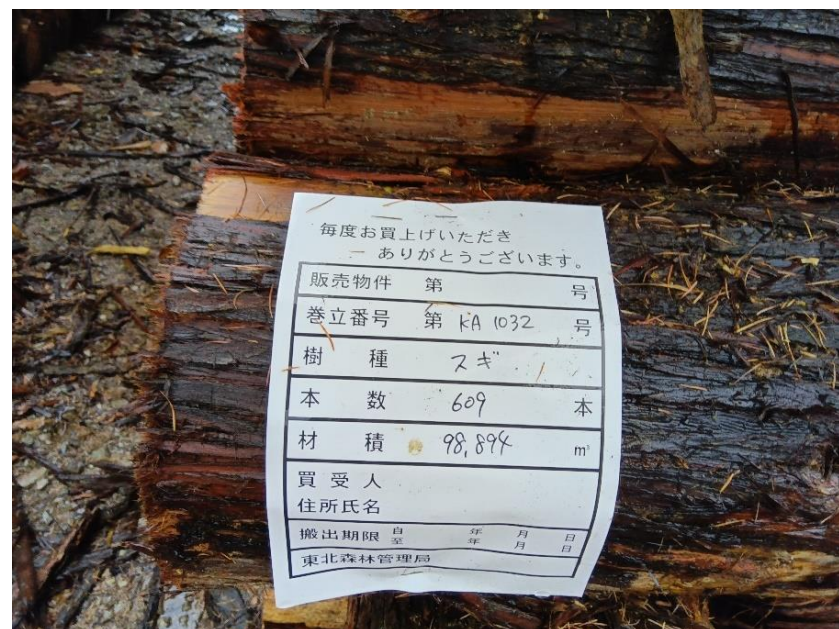 毎度お買上げいただき
ありがとうございます。
販売物件 第 号
巻立番号 第 KA 1032 号
樹種 スギ
本数 609 本
材積 98,894 m³
買受人
住所氏名
搬出期限 自 年 月 日
至 年 月 日
東北森林管理局